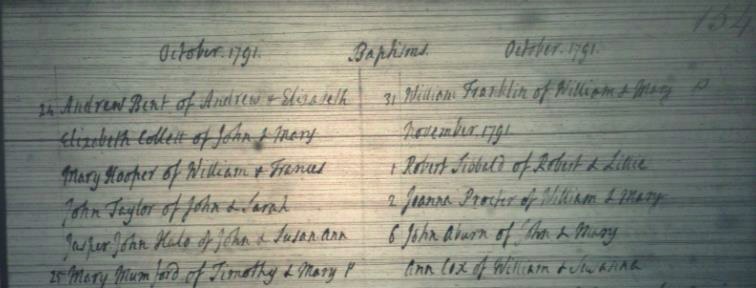 154
October. 1791. Baptisms. October. 1791.
24 Andrew Bent of Andrew & Elizabeth
Elizabeth Collett of John & Mary
Mary Hooper of William & Frances
John Taylor of John & Sarah
Jasper John Halo of John & Susan Ann
25 Mary Mumford of Timothy & Mary P
31 William Franklin of William & Mary P
November. 1791
1 Robert Sibbald of Robert & 
2 Joanna Procter of William & Mary
6 John Aburn of John & Mary
Ann Cox of William & Suwanna